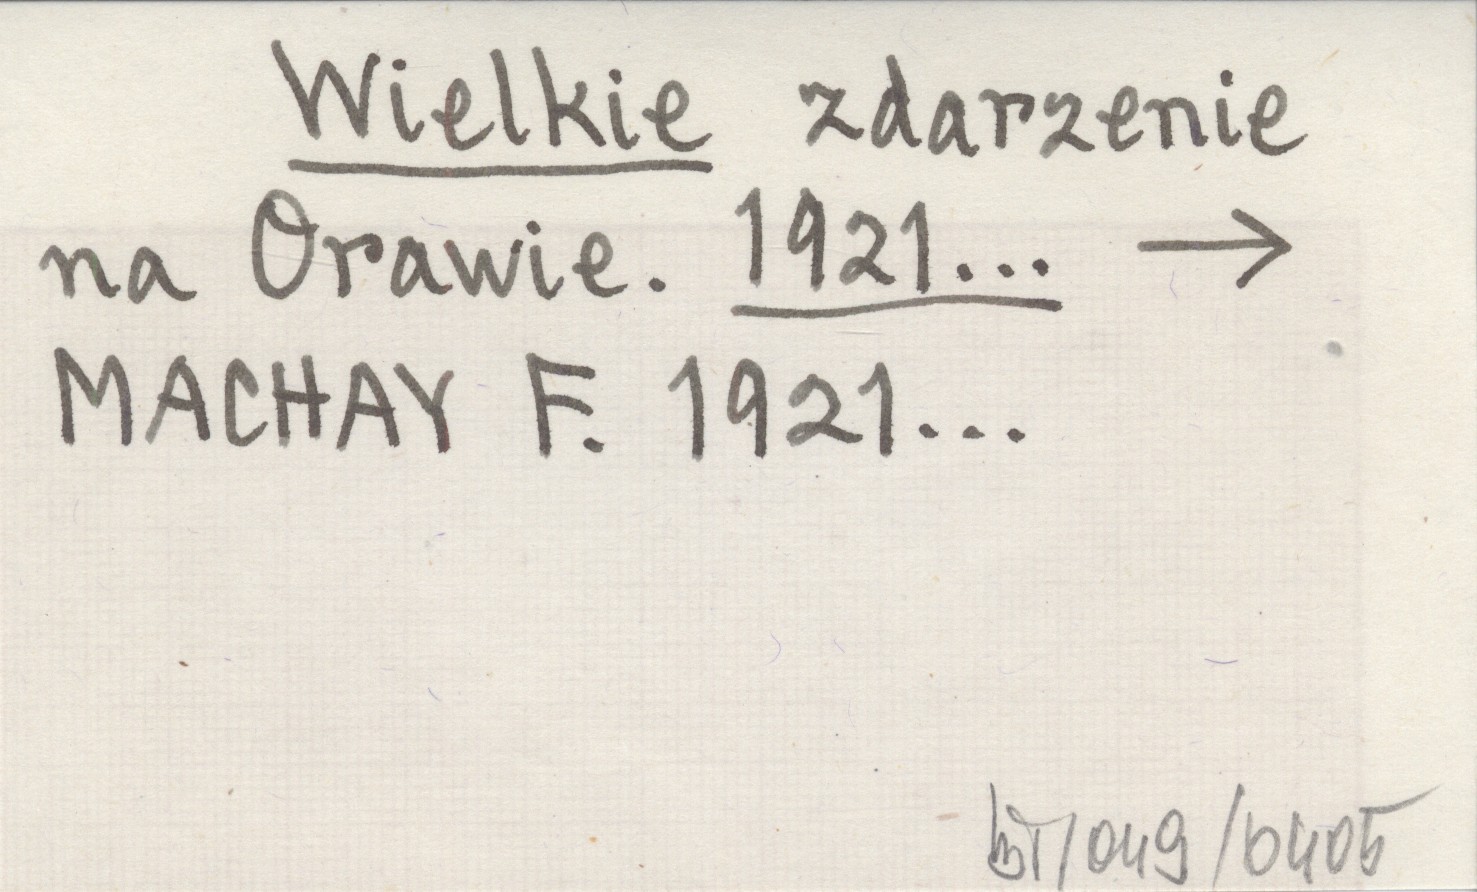 Wielkie zdarzenie
na Orawie. 1921... →
MACHAY F. 1921...
/049/0405